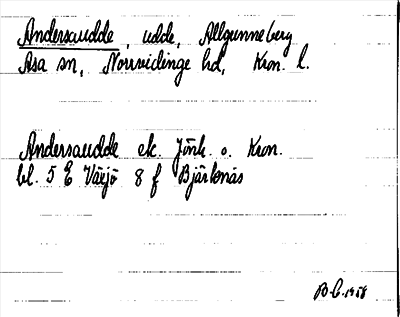 Andersaudde, udde, Allgunneberg
Asa sn, Norrvidinge hd, Kron. l.
Andersaudde ek. Jönk. o. Kron.
bl. 5 E Växjö 8 f Bjärknäs
B.C. 1958